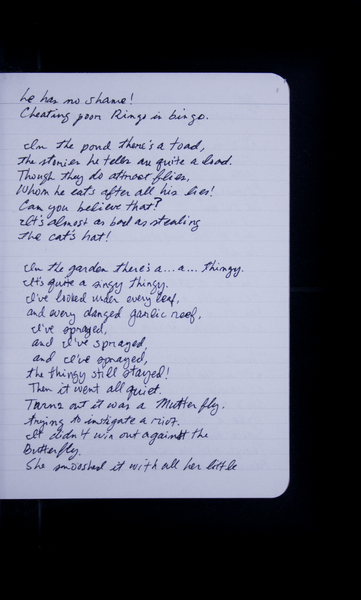 he has no shame!
Cheating poor Ringo in bingo.
In the pond there's a toad,
the stories he tells are quite a load.
Though they do attract flies,
Whom he eats after all his lies!
Can you believe that?
It's almost as bad as stealing
the cat's hat!
In the garden there's a...a...thingy.
It's quite a singy thingy.
I've looked under every leaf,
and every danged garlic reef,
I've sprayed,
and I've sprayed,
and I've sprayed,
the thingy still stayed!
Then it went all quiet.
Turns out it was a Mutterfly.
trying to instigate a riot.
It didn't win out against the
Butterfly.
She smooshed it with all her little